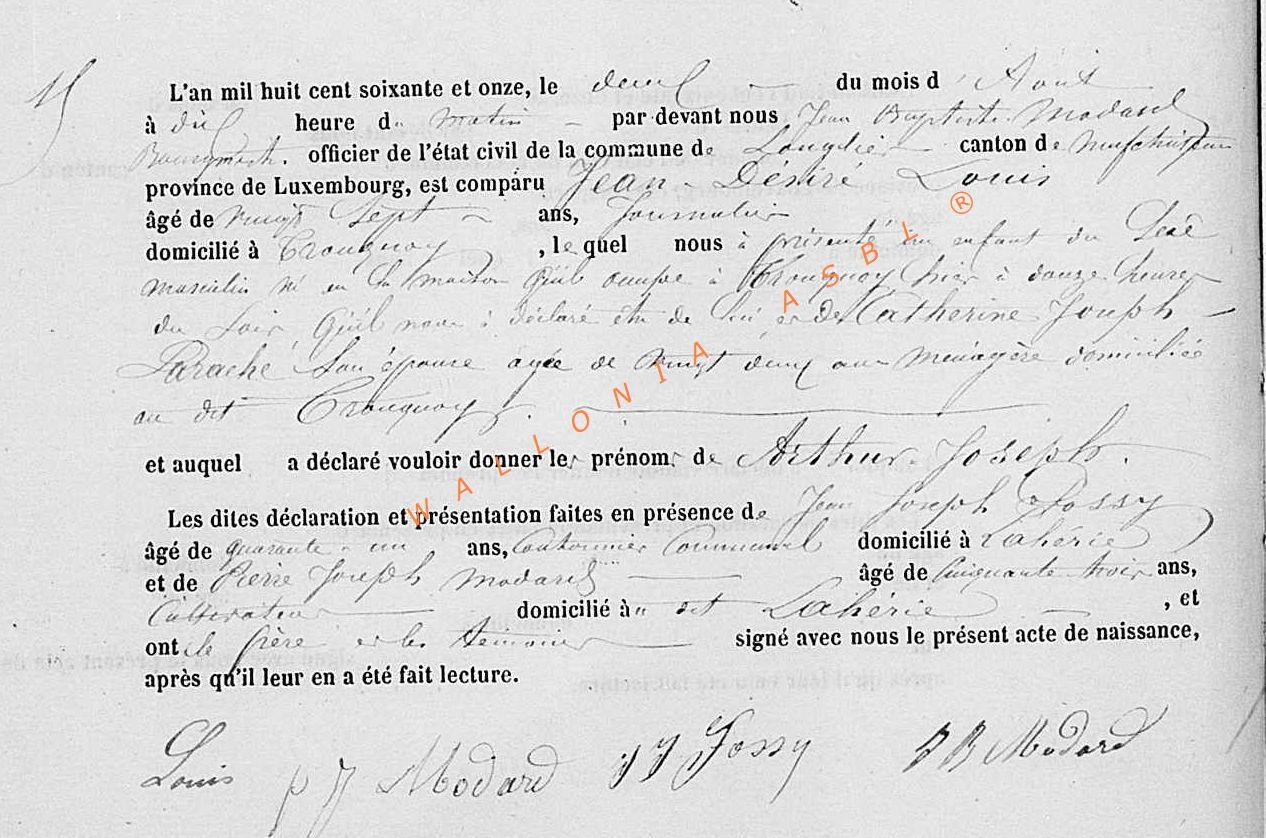 15
L'an mil huit cent soixante et onze, le deux du mois d' Août
à dix heure du matin par devant nous Jean Baptiste Modard
Bourgmestre. officier de l'état civil de la commune de Longlier canton de Neufchâteau
province de Luxembourg, est comparu Jean Désiré Louis
âgé de vingt Sept ans, Journalier
domicilié à Tronquoy, lequel nous à présenté un enfant du Sexe
masculin né en la maison qu'il occupe à Tronquoy hier à douze heures
du Soir qu'il nous à déclaré être de lui et de Catherine Joseph
Parache Son épouse agée de vingt deux ans ménagère domiciliée
au dit Tronquoy.
et auquel a déclaré vouloir donner les prénoms de Arthur Joseph.
Les dites déclaration et présentation faites en présence de Jean Joseph Fossy
âgé de quarante un ans, Cantonnier Communal domicilié à Lahérie
et de Pierre Joseph Modard âgé de Cinquante trois ans,
Cultivateur domicilié à u dit Lahérie, et
ont le père et les témoins signé avec nous le présent acte de naissance,
après qu'il leur en a été fait lecture.
Louis P J Modard J J Fossy J B Modard
WALLONIA ASBL ®